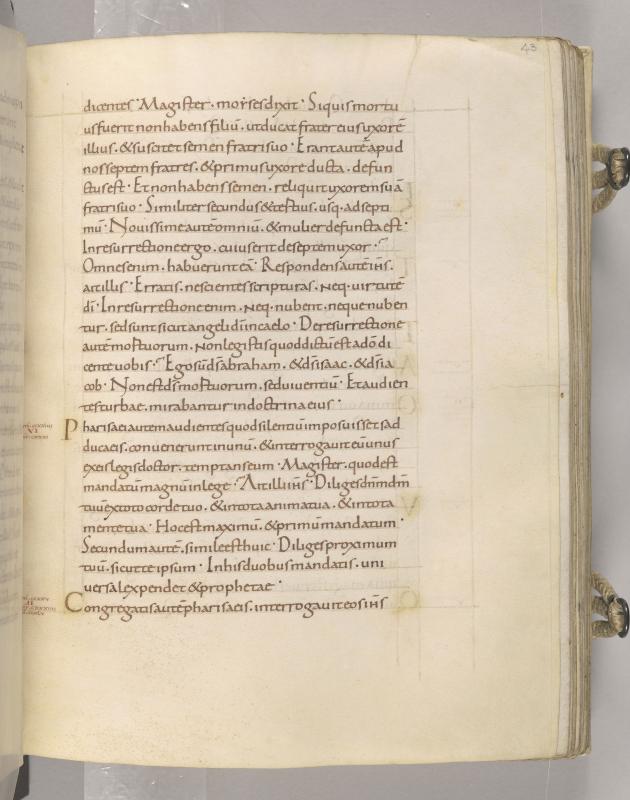 43
dicentes· Magister· moyses dixit· Si quis mortu
us fuerit non habens filiū· ut ducat frater eius uxorē
illius· & suscitet semen fratri suo· Erant autē apud
nos septem fratres· & primus uxore ducta· defun
ctus est· Et non habens semen· reliquit uxorem suā
fratri suo· Similiter secundus & tertius· usq· ad septi
mū· Novissime autē omniū· & mulier defuncta est·
In resurrectione ergo· cuius erit de septem uxor·
Omnes enim· habuerunt eā· Respondens autē ih̅s·
ait illis· Erratis· nescientes scripturas· neq· virtutē
dī· In resurrectione enim· neq· nubent· neque nuben
tur· sed sunt sicut angeli dī in caelo· De resurrectione
autē mortuorum· non legistis quod dictū est a dō di
cente vobis· Ego sū ds̄ abraham· & ds̄ isaac· & ds̄ ia
cob· Non est ds̄ mortuorum· sed viventiū· Et audien
tes turbae· mirabantur in doctrina eius·
Pharisaei autem audientes quod silentiū imposuisset sad
ducaeis· convenerunt in unū· & interrogavit eū unus
ex eis legis doctor· temptans eum· Magister· quod est
mandatū magnū in lege· Ait illi ih̅s· Diliges dn̄m dm̄
tuū ex toto corde tuo· & in tota anima tua· & in tota
mente tua· Hoc est maximū· & primū mandatum·
Secundum autē· simile est huic· Diliges proximum
tuū· sicut te ipsum· In his duobus mandatis· uni
versa lex pendet & prophetae·
Congregatis autē pharisaeis· interrogavit eos ih̅s